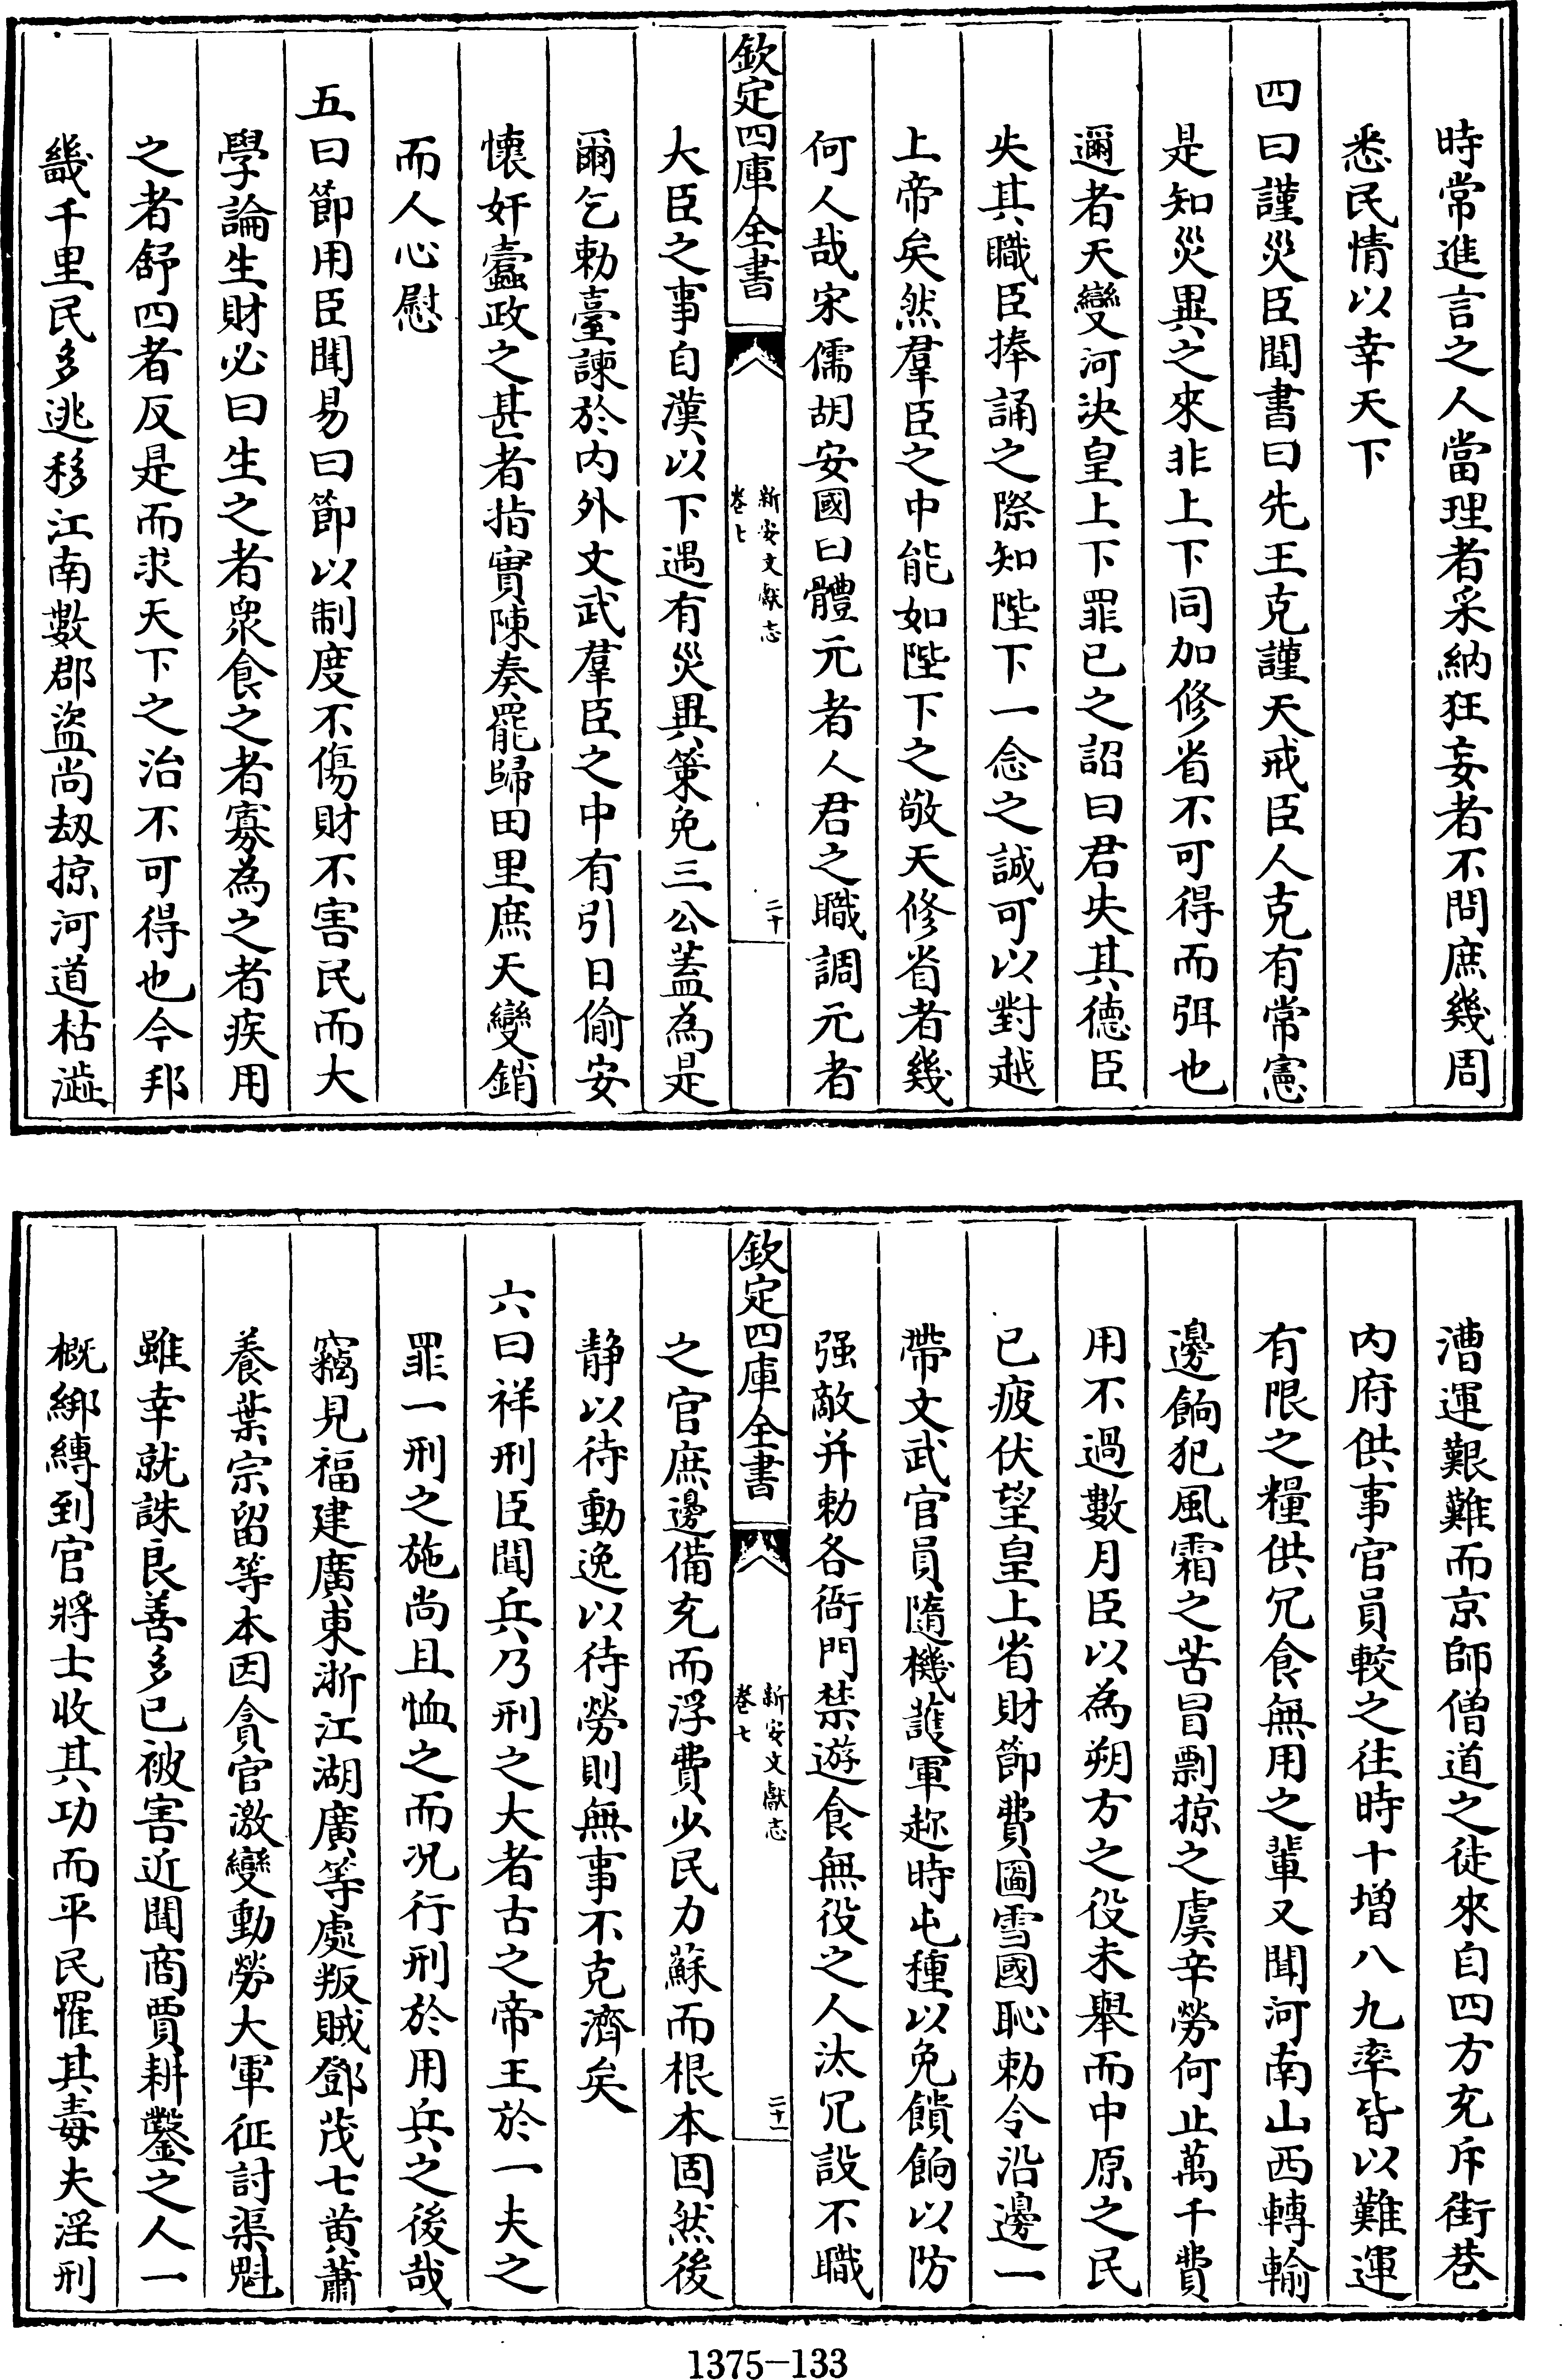 時常進言之人當理者采納狂妄者不問庶幾周
悉民情以幸天下
四曰謹災臣聞書曰先王克謹天戒臣人克有常憲
是知災異之來非上下同加修省不可得而弭也
邇者天變河決皇上下罪已之詔曰君失其德臣
失其職臣捧誦之際知陛下一念之誠可以對越
上帝矣然羣臣之中能如陛下之敬天修省者幾
何人哉宋儒胡安國曰體元者人君之職調元者
欽定四庫全書
新安文獻志
卷七
二十
大臣之事自漢以下遇有災異策免三公蓋為是
爾乞勅臺諫於内外文武羣臣之中有引日偷安
懷奸蠧政之甚者指實陳奏罷歸田里庶天變銷
而人心慰
五曰節用臣聞易曰節以制度不傷財不害民而大
學論生財必曰生之者衆食之者寡為之者疾用
之者舒四者反是而求天下之治不可得也今邦
畿千里民多逃移江南數郡盜尚刼掠河道枯澁
漕運艱難而京師僧道之徒來自四方充斥街巷
内府供事官員較之往時十増八九率皆以難運
有限之糧供冗食無用之輩又聞河南山西轉輸
邊餉犯風霜之苦冒剽掠之虞辛勞何止萬千費
用不過數月臣以為朔方之役未舉而中原之民
已疲伏望皇上省財節費圖雪國恥勅令沿邊一
帶文武官員隨機護軍趂時屯種以免饋餉以防
强敵并勅各衙門禁遊食無役之人汰冗設不職
欽定四庫全書
新安文獻志
卷七
二十一
之官庶邊備充而浮費少民力蘇而根本固然後
静以待動逸以待勞則無事不克濟矣
六曰祥刑臣聞兵乃刑之大者古之帝王於一夫之
罪一刑之施尚且恤之而况行刑於用兵之後哉
竊見福建廣東浙江湖廣等處叛賊鄧茂七黄蕭
養葉宗留等本因貪官激變動勞大軍征討渠魁
雖幸就誅良善多已被害近聞商賈耕鑿之人一
概綁縛到官將士收其功而平民罹其毒夫淫刑
1375-133